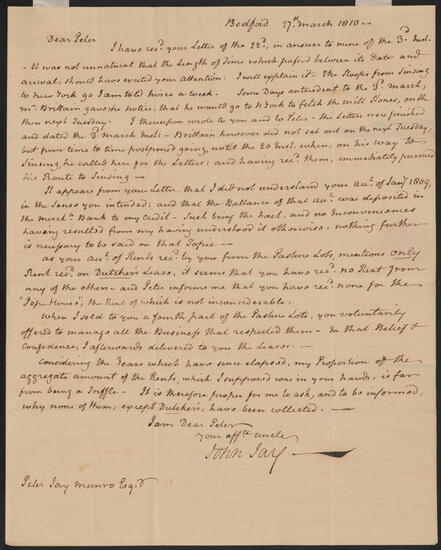 Bedford 27th. March 1810 —
Dear Peter
I have recd. your Letter of the 22d., in answer to mine of the 3d. Inst.
- It was not unnatural that the Length of Time which passed between its Date and
arrival, should have excited your attention. I will explain it. The Sloops from Sinsing
to New York go I am told twice a week. Some Days antecedent to the 3d. march,
mr. Brittain gave me notice, that he would go to N York to fetch the mill Stones, on the
then next Tuesday. I thereupon wrote to you and to Peter — the Letters were finished
and dated the 3d. march Inst — Brittain however did not set out on the next Tuesday,
but from time to time postponed going, until the 20 Inst. when, on his way to
Sinsing, he called here for the Letters; and having recd. them, immediately pursued
his Route to Sinsing —
It appears from your Letter, that I did not understand your acct. of Jany. 1809,
in the Sense you intended; and that the Ballance of that acct. was deposited in
the Merchts. Bank to my Credit — Such being the fact, and no Inconveniences
having resulted from my having understood it otherwise, nothing further
is necessary to be said on that Topic —
as your acct. of Rents recd. by you from the Pasture Lots, mentions only
Rent recd. on Dutcher's Lease, it seems that you have recd. no Rent from
any of the others — and Peter informs me that you have recd. none for the
the Rent of which is not inconsiderable.
When I sold to you a fourth part of the Pasture Lots, you voluntarily
offered to manage all the Business that respected them — In that Belief &
Confidence, I afterwards delivered to you the Leases. —
Considering the Years which have since elapsed, my Proportion of the
aggregate amount of the Rents, which I supposed was in your hands, is far
from being a Triffle — It is therefore proper for me to ask, and to be informed,
why none of them, except Dutcher's, have been collected. —
I am Dear Peter
your affte. uncle
John Jay —
Peter Jay Munro Esqr.